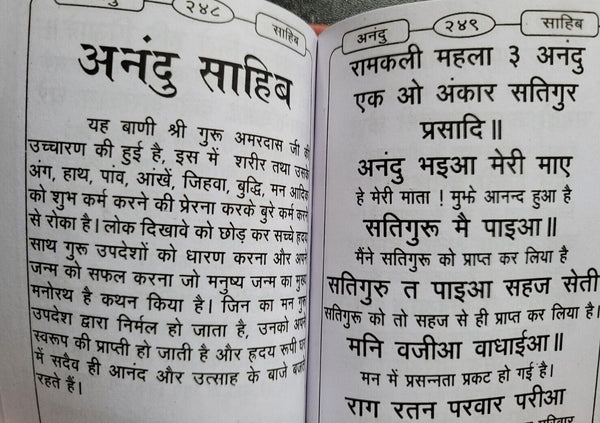 २४८
साहिब
अनंदु साहिब
यह बाणी श्री गुरू अमरदास जी की
उच्चारण की हुई है, इस में शरीर तथा उसके
अंग, हाथ, पांव, आंखें, जिहवा, बुद्धि, मन आदिक
को शुभ कर्म करने की प्रेरना करके बुरे कर्म करने
से रोका है। लोक दिखावे को छोड़ कर सच्चे ह्रदय
साथ गुरू उपदेशों को धारण करना और अपने
जन्म को सफल करना जो मनुष्य जन्म का मुख्य
मनोरथ है कथन किया है। जिन का मन गुरू
उपदेश द्वारा निर्मल हो जाता है, उनको अपने
स्वरूप की प्राप्ती हो जाती है और ह्रदय रूपी घर
में सदैव ही आनंद और उत्साह के बाजे बजते
रहते हैं।
अनंदु
२४९
साहिब
रामकली महला ३ अनंदु
एक ओ अंकार सतिगुर
प्रसादि॥
अनंदु भइआ मेरी माए
हे मेरी माता ! मुझे आनन्द हुआ है
सतिगुरू मै पाइआ॥
मैंने सतिगुरू को प्राप्त कर लिया है
सतिगुरु त पाइआ सहज सेती
सतिगुरू को तो सहज से ही प्राप्त कर लिया है।
मनि वजीआ वाधाईआ॥
मन में प्रसन्नता प्रकट हो गई है।
राग रतन परवार परीआ
परिवार